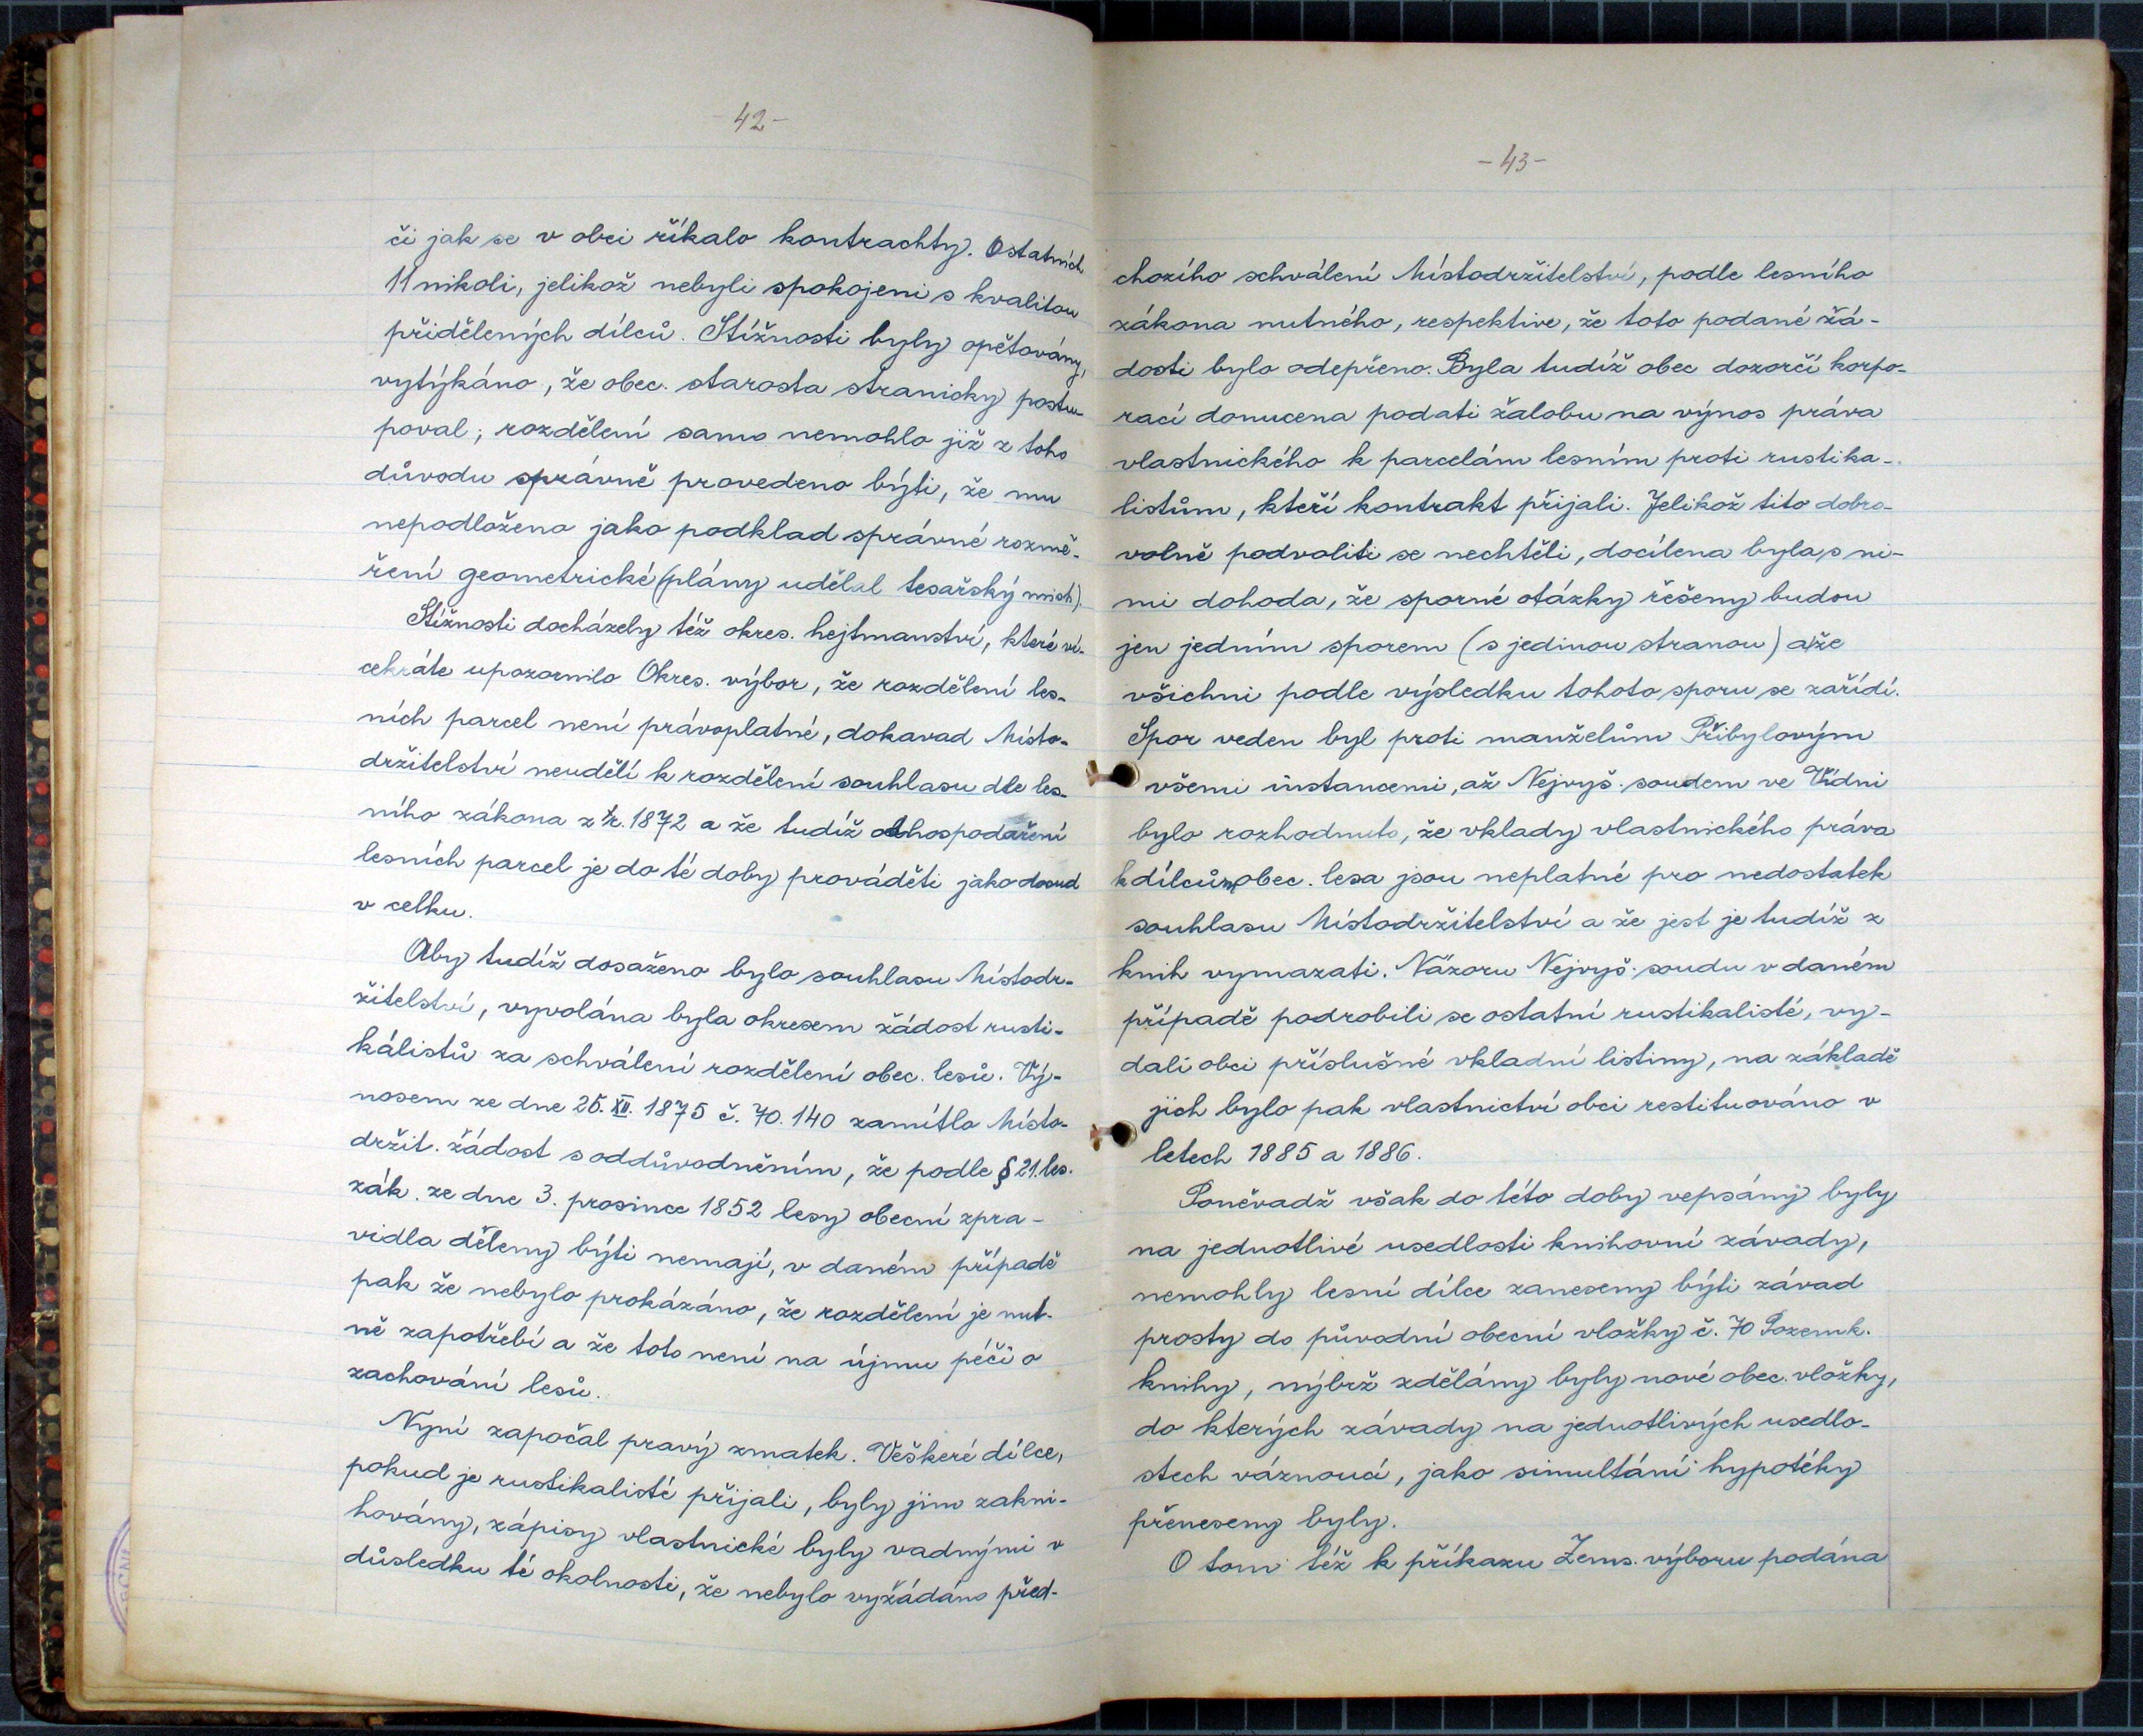 42-
či jak se v obci říkalo kontrachty. Ostatních
11 nikoli, jelikož nebyli spokojeni s kvalitou
přidělených dílců. Stížnosti byly opětovány,
vytýkáno, že obec. starosta stranicky postu-
poval; rozdělení samo nemohlo již z toho
důvodu správně provedeno býti, že mu
nepodloženo jako podklad správné rozmě-
ření geometrické (plány udělal tesařský mistr).
Stížnosti docházely též okres. hejtmanství, které ví-
cekráte upozornilo Okres. výbor, že rozdělení les-
ních parcel není právoplatné, dokavad Místo-
držitelství neudělí k rozdělení souhlasu dle les-
ního zákona z r. 1872 a že tudíž obhospodaření
lesních parcel je do té doby prováděti jako dosud
v celku.
Aby tudíž dosaženo bylo souhlasu Místodr-
žitelství, vyvolána byla okresem žádost rusti-
kálistů za schválení rozdělení obec. lesů. Vý-
nosem ze dne 25. XII. 1875 č. 70.140 zamítlo Místo-
držit. žádost s oddůvodněním, že podle § 21. les.
zák. ze dne 3. prosince 1852 lesy obecní zpra-
vidla děleny býti nemají, v daném případě
pak že nebylo prokázáno, že rozdělení je nut-
ně zapotřebí a že toto není na újmu péči o
zachování lesů.
Nyní započal pravý zmatek. Veškeré dílce,
pokud je rustikalisté přijali, byly jim zakni-
hovány, zápisy vlastnické byly vadnými v
důsledku té okolnosti, že nebylo vyžádáno před-
-43-
chozího schválení Místodržitelství, podle lesního
zákona nutného, respektive, že toto podané žá-
dosti bylo odepřeno. Byla tudíž obec dozorčí korpo-
rací donucena podati žalobu na výnos práva
vlastnického k parcelám lesním proti rustika-
listům, kteří kontrakt přijali. Jelikož tito dobro-
volně podvoliti se nechtěli, docílena byla s ni-
mi dohoda, že sporné otázky řešeny budou
jen jedním sporem (s jedinou stranou) a že
všichni podle výsledku tohoto sporu se zařídí.
Spor veden byl proti manželům Přibylovým
všemi instancemi, až Nejvyš. soudem ve Vídni
bylo rozhodnuto, že vklady vlastnického práva
k dílcům obec. lesa jsou neplatné pro nedostatek
souhlasu Místodržitelství a že jest je tudíž z
knih vymazati. Názoru Nejvyš. soudu v daném
případě podrobili se ostatní rustikalisté, vy-
dali obci příslušné vkladní listiny, na základě
jich bylo pak vlastnictví obci restituováno v
letech 1885 a 1886.
Poněvadž však do této doby vepsány byly
na jednotlivé usedlosti knihovní závady,
nemohly lesní dílce zaneseny býti závad
prosty do původní obecní vložky č. 70 Pozemk.
knihy, nýbrž zdělány byly nové obec. vložky,
do kterých závady na jednotlivých usedlo-
stech váznoucí, jako simultání hypotéky
přeneseny byly.
O tom též k příkazu Zems. výboru podána